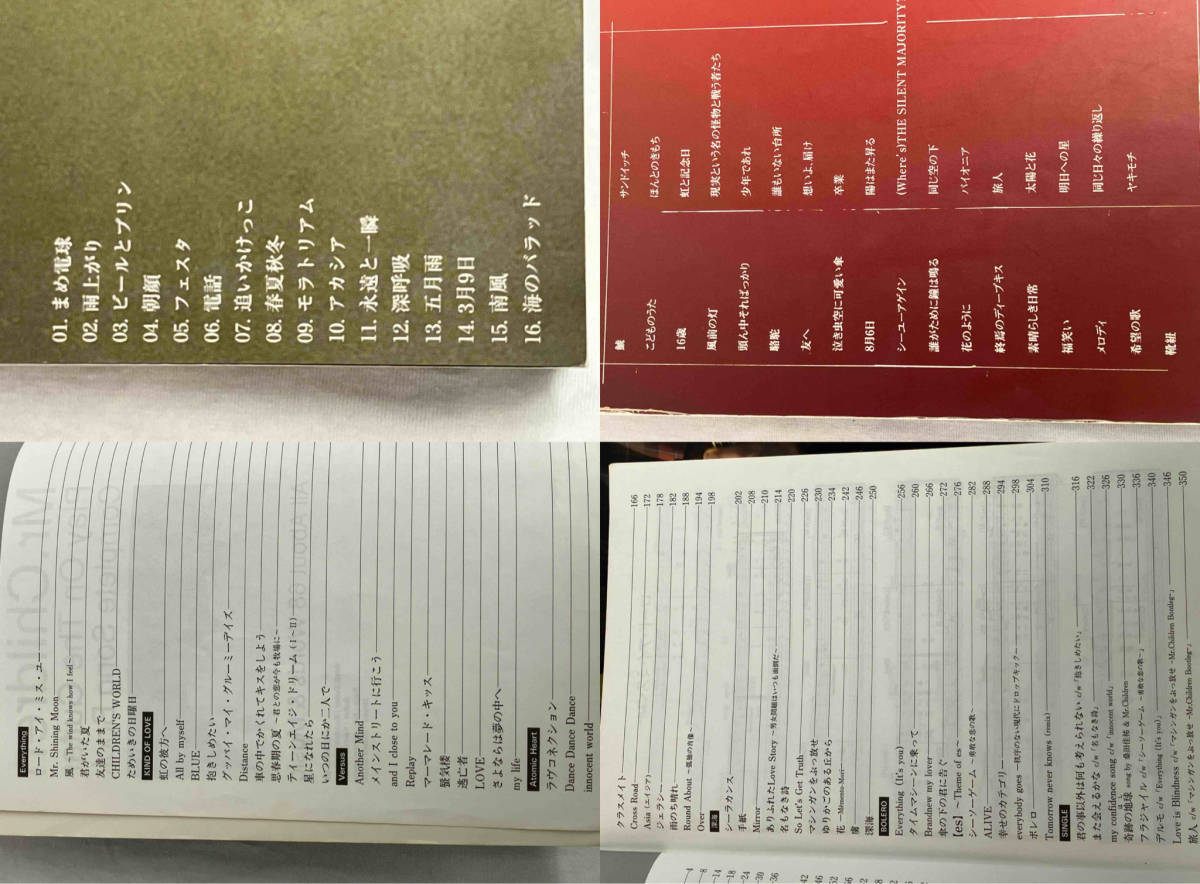 01. まめ電球
02. 雨上がり
03. ビールとプリン
04. 朝顔
05. フェスタ
06. 電話
07. 追いかけっこ
08. 春夏秋冬
09. モラトリアム
10. アカシア
11. 永遠と一瞬
12. 深呼吸
13. 五月雨
14. 3月9日
15. 南風
16. 海のバラッド
鯱
こどものうた
16歳
風前の灯
頭ん中そればっかり
駱駝
友へ
泣き虫空に可愛い傘
8月6日
シーユーアゲイン
誰がために鐘は鳴る
花のように
終焉のディープキス
素晴らしき日常
福笑い
メロディ
希望の歌
靴紐
サンドイッチ
ほんとのきもち
虹と記念日
現実という名の怪物と戦う者たち
少年であれ
誰もいない台所
想いよ、届け
卒業
陽はまた昇る
(Where's)THE SILENT MAJORITY?
同じ空の下
パイオニア
旅人
太陽と花
明日への星
同じ日々の繰り返し
ヤキモチ
Everything
ロード・アイ・ミス・ユー
Mr. Shining Moon
風 ~The wind knows how I feel~
君がいた夏
友達のままで
CHILDREN'S WORLD
ためいきの日曜日
KIND OF LOVE
虹の彼方へ
All by myself
BLUE
抱きしめたい
グッバイ・マイ・グルーミーデイズ
Distance
車の中でかくれてキスをしよう
思春期の夏 ~君との恋が今も牧場に~
ティーンエイジ・ドリーム (I~II)
星になれたら
いつの日にか二人で
Versus
Another Mind
メインストリートに行こう
and I close to you
Replay
マーマレード・キッス
蜃気楼
逃亡者
LOVE
さよならは夢の中へ
my life
Atomic Heart
ラヴコネクション
Dance Dance Dance
innocent world
クラスメイト 166
Cross Road 172
Asia (エイジア) 178
ジェラシー 182
雨のち晴れ 188
Round About ~孤独の肖像~ 194
Over 198
深海
シーラカンス 202
手紙 208
Mirror 210
ありふれたLove Story ~男女問題はいつも面倒だ~ 214
名もなき詩 220
So Let's Get Truth 226
マシンガンをぶっ放せ 230
ゆりかごのある丘から 234
花 -Mémento-Mori- 242
虜 246
深海 250
BOLERO
Everything (It's you) 256
タイムマシーンに乗って 260
Brandnew my lover 266
傘の下の君に告ぐ 272
[es] ~Theme of es~ 276
シーソーゲーム ~勇敢な恋の歌~ 282
ALIVE 288
幸せのカテゴリー 294
everybody goes ~秩序のない現代にドロップキック~ 298
ボレロ 304
Tomorrow never knows (remix) 310
SINGLE
君の事以外は何も考えられない c/w「抱きしめたい」 316
また会えるかな c/w「名もなき詩」 322
my confidence song c/w「innocent world」 326
奇跡の地球 song by 桑田佳祐 & Mr.Children 330
フラジャイル c/w「シーソーゲーム ~勇敢な恋の歌~」 336
デルモ c/w「Everything (It's you)」 340
Love is Blindness c/w「マシンガンをぶっ放せ -Mr.Children Bootleg-」 346
旅人 c/w「マシンガンをぶっ放せ -Mr.Children Bootleg-」 350